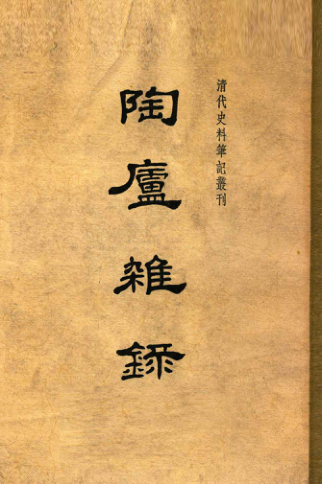 清代史料筆記叢刊
陶廬雜錄